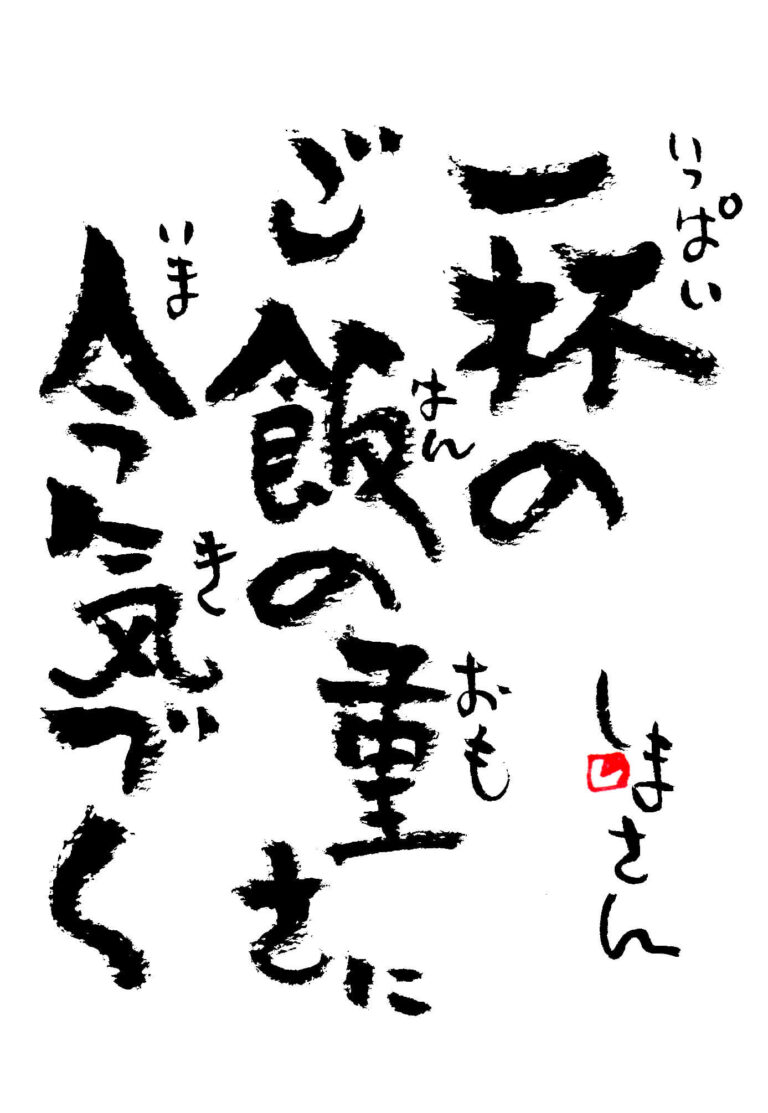 一杯の
いっぱい
ご飯の重さに
はん
おも
今気づく
いま
き
しまさん
し